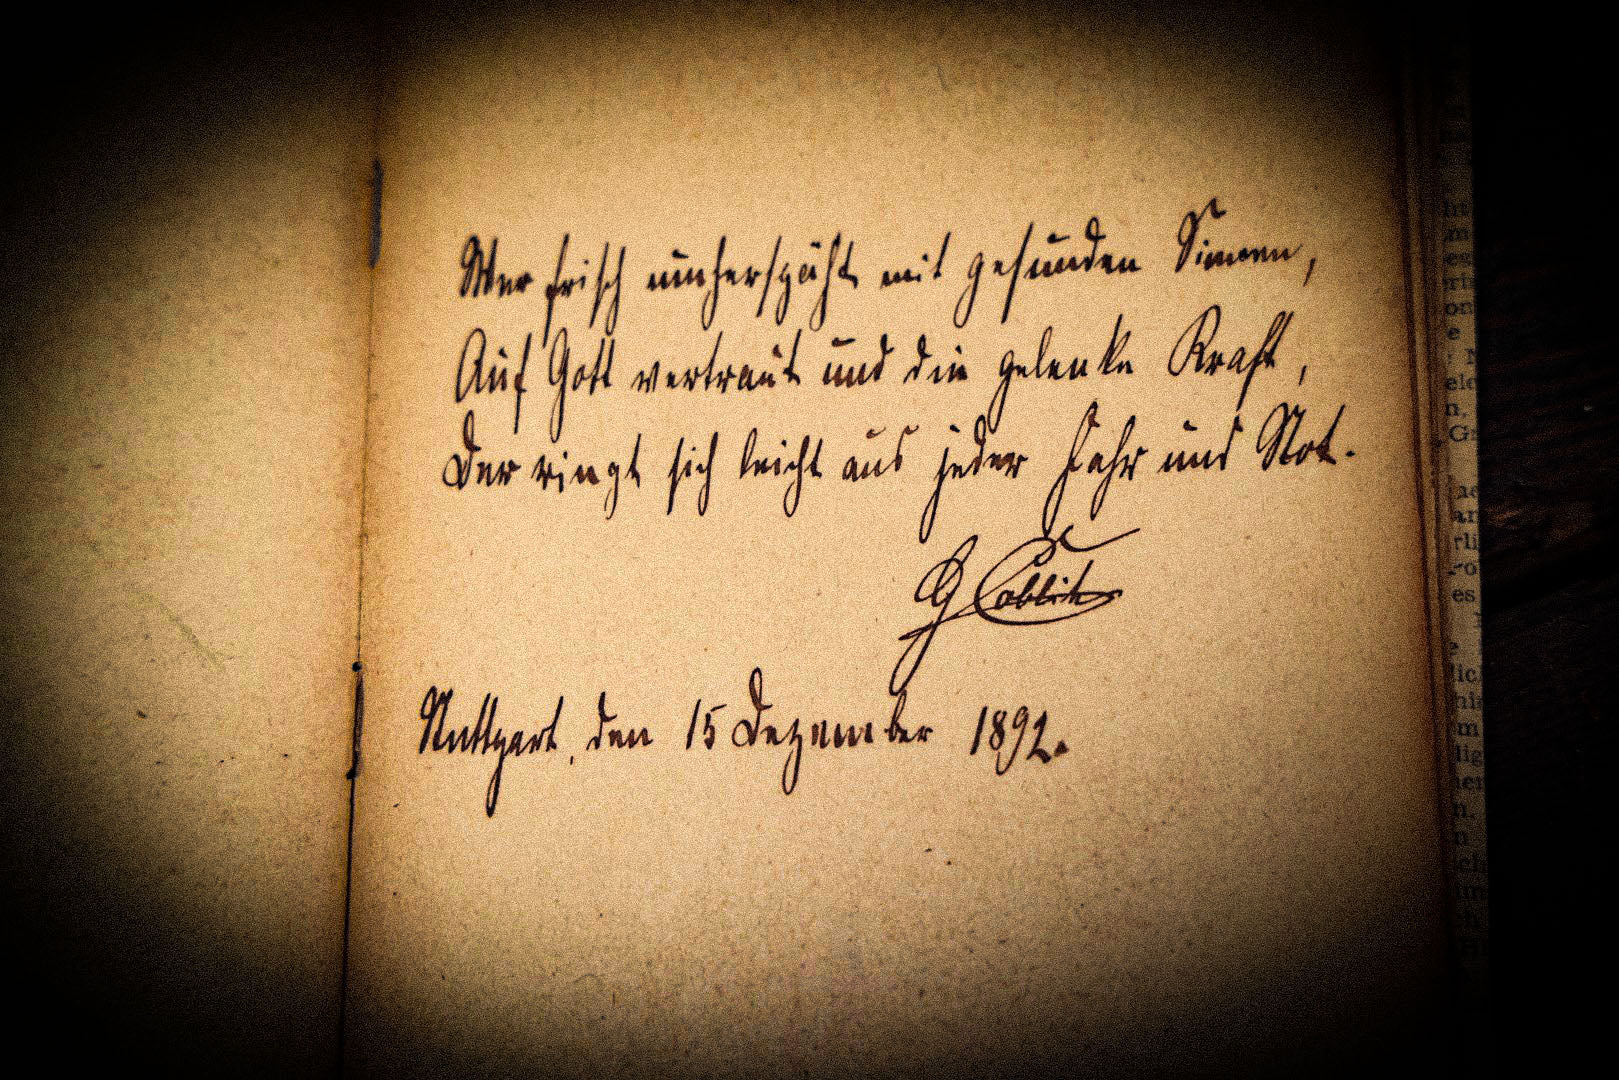 Wer frisch umherspäht mit gesunden Sinnen,
Auf Gott vertraut und die gelenke Kraft,
Der ringt sich leicht aus jeder Fahr und Not.
G
Stuttgart, den 15 Dezember 1892.